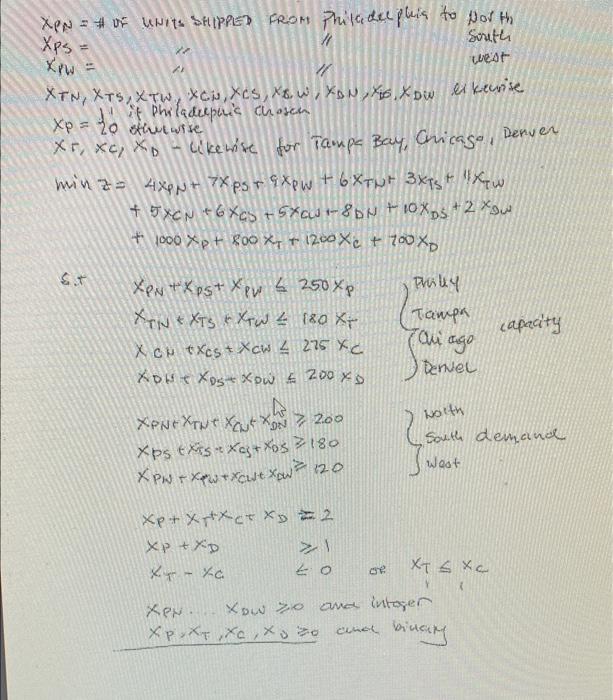 XPN = # OF UNITS SHIPPED FROM Philadelphia to North
XPS = " " South
XPW = " " West
XTN, XTS, XTW, XCN, XCS, XCW, XDN, XDS, XDW likewise
XP = { 1 if Philadelphia chosen
0 otherwise
XT, XC, XD - likewise for Tampa Bay, Chicago, Denver
min z = 4XPN + 7XPS + 9XPW + 6XTN + 3XTS + 11XTW
+ 5XCN + 6XCS + 5XCW + 8DN + 10XDS + 2XDW
+ 1000 XP + 800 XT + 1200 XC + 700 XD
S.t
XPN + XPS + XPW ≤ 250 XP } Philly
XTN + XTS + XTW ≤ 180 XT Tampa capacity
XCN + XCS + XCW ≤ 275 XC Chicago
XDN + XDS + XDW ≤ 200 XD Denver
XPN + XTN + XCN + XDN ≥ 200 } North
XPS + XTS + XCS + XDS ≥ 180 South demand
XPW + XTW + XCW + XDW ≥ 120 West
XP + XT + XC + XD = 2
XP + XD ≥ 1
XT - XC ≤ 0 or XT ≤ XC
XPN .... XDW ≥ 0 and integer
XP, XT, XC, XD ≥ 0 and binary